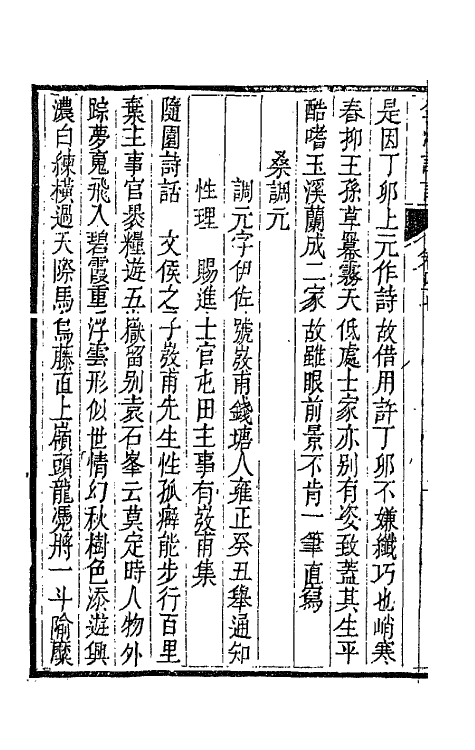 是因丁卯上元作詩故借用許丁卯不嫌纖巧也峭寒
春抑王孫草暴霧天低處士家亦别有姿致蓋其生平
酷嗜玉溪蘭成二家故雖眼前景不肯一筆直寫
桑調元
調元字伊佐號弢甫錢塘人雍正癸丑舉通知
性理賜進士官屯田主事有弢甫集
隨園詩話文侯之子弢甫先生性孤癖能步行百里
棄主事官裹糧遊五嶽留别袁石峯云莫定時人物外
踪夢䰟飛入碧霞重浮雲形似世情幻秋樹色添遊興
濃白練橫過天際馬烏藤直上嶺頭龍憑將一斗隃糜